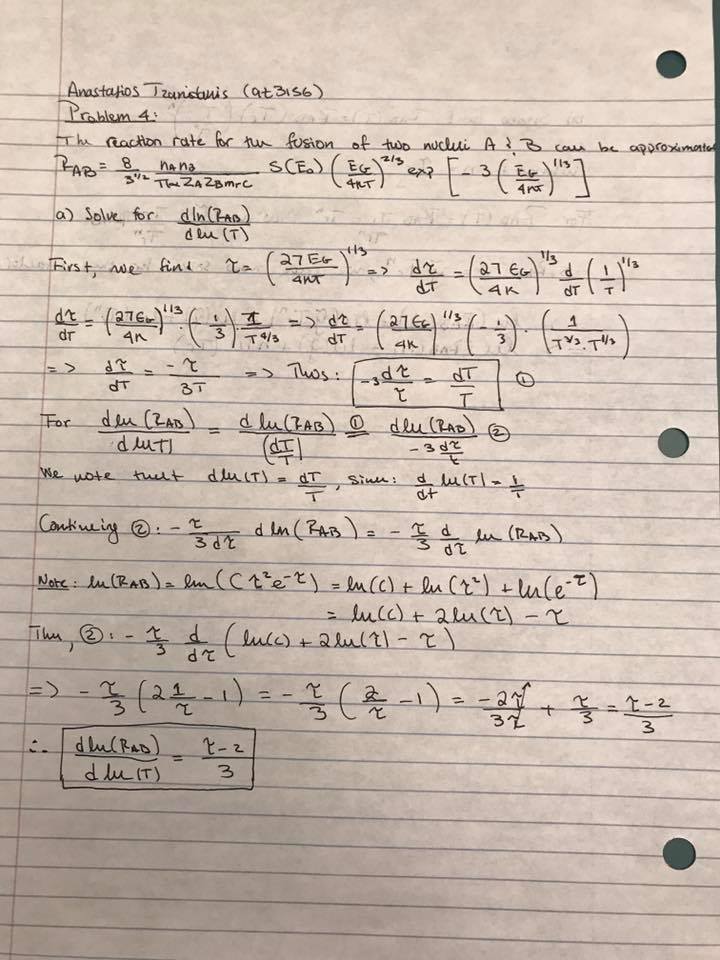 Anastatios Tzanidanis (at3156)
Problem 4:
The reaction rate for the fusion of two nuclei A & B can be approximated
R_AB = 8/3^1/2 n_A n_B/(πhe Z_A Z_B m_r C) S(E_0) (E_G/4kT)^2/3 exp [-3 (E_G/4kT)^1/3]
a) Solve for dln(R_AB)/dln(T)
First, we find τ = (27E_G/4kT)^1/3 => dτ/dT = (27E_G/4k)^1/3 d/dT (1/T)^1/3
dτ/dT = (27E_G/4k)^1/3 · (-1/3) · 1/T^4/3 => dτ/dT = (27E_G/4k)^1/3 (-1/3) · (1/T^3/3 · T^1/3)
=> dτ/dT = -τ/3T => Thus: -3dτ/τ = dT/T ①
For dln(R_AB)/dln(T) = dln(R_AB)/(dT/T) =① dln(R_AB)/(-3dτ/τ) ②
We note that dln(T) = dT/T, since: d/dt ln(T) = 1/T
Continuing ②: -τ/3dτ dln(R_AB) = -τ/3 d/dτ ln(R_AB)
Note: ln(R_AB) = ln(Cτ²e^-τ) = ln(c) + ln(τ²) + ln(e^-τ)
= ln(c) + 2ln(τ) - τ
Thus, ②: -τ/3 d/dτ (ln(c) + 2ln(τ) - τ)
=> -τ/3 (2 1/τ - 1) = -τ/3 (2/τ - 1) = -2τ/3τ + τ/3 = τ-2/3
∴ dln(R_AB)/dln(T) = τ-2/3